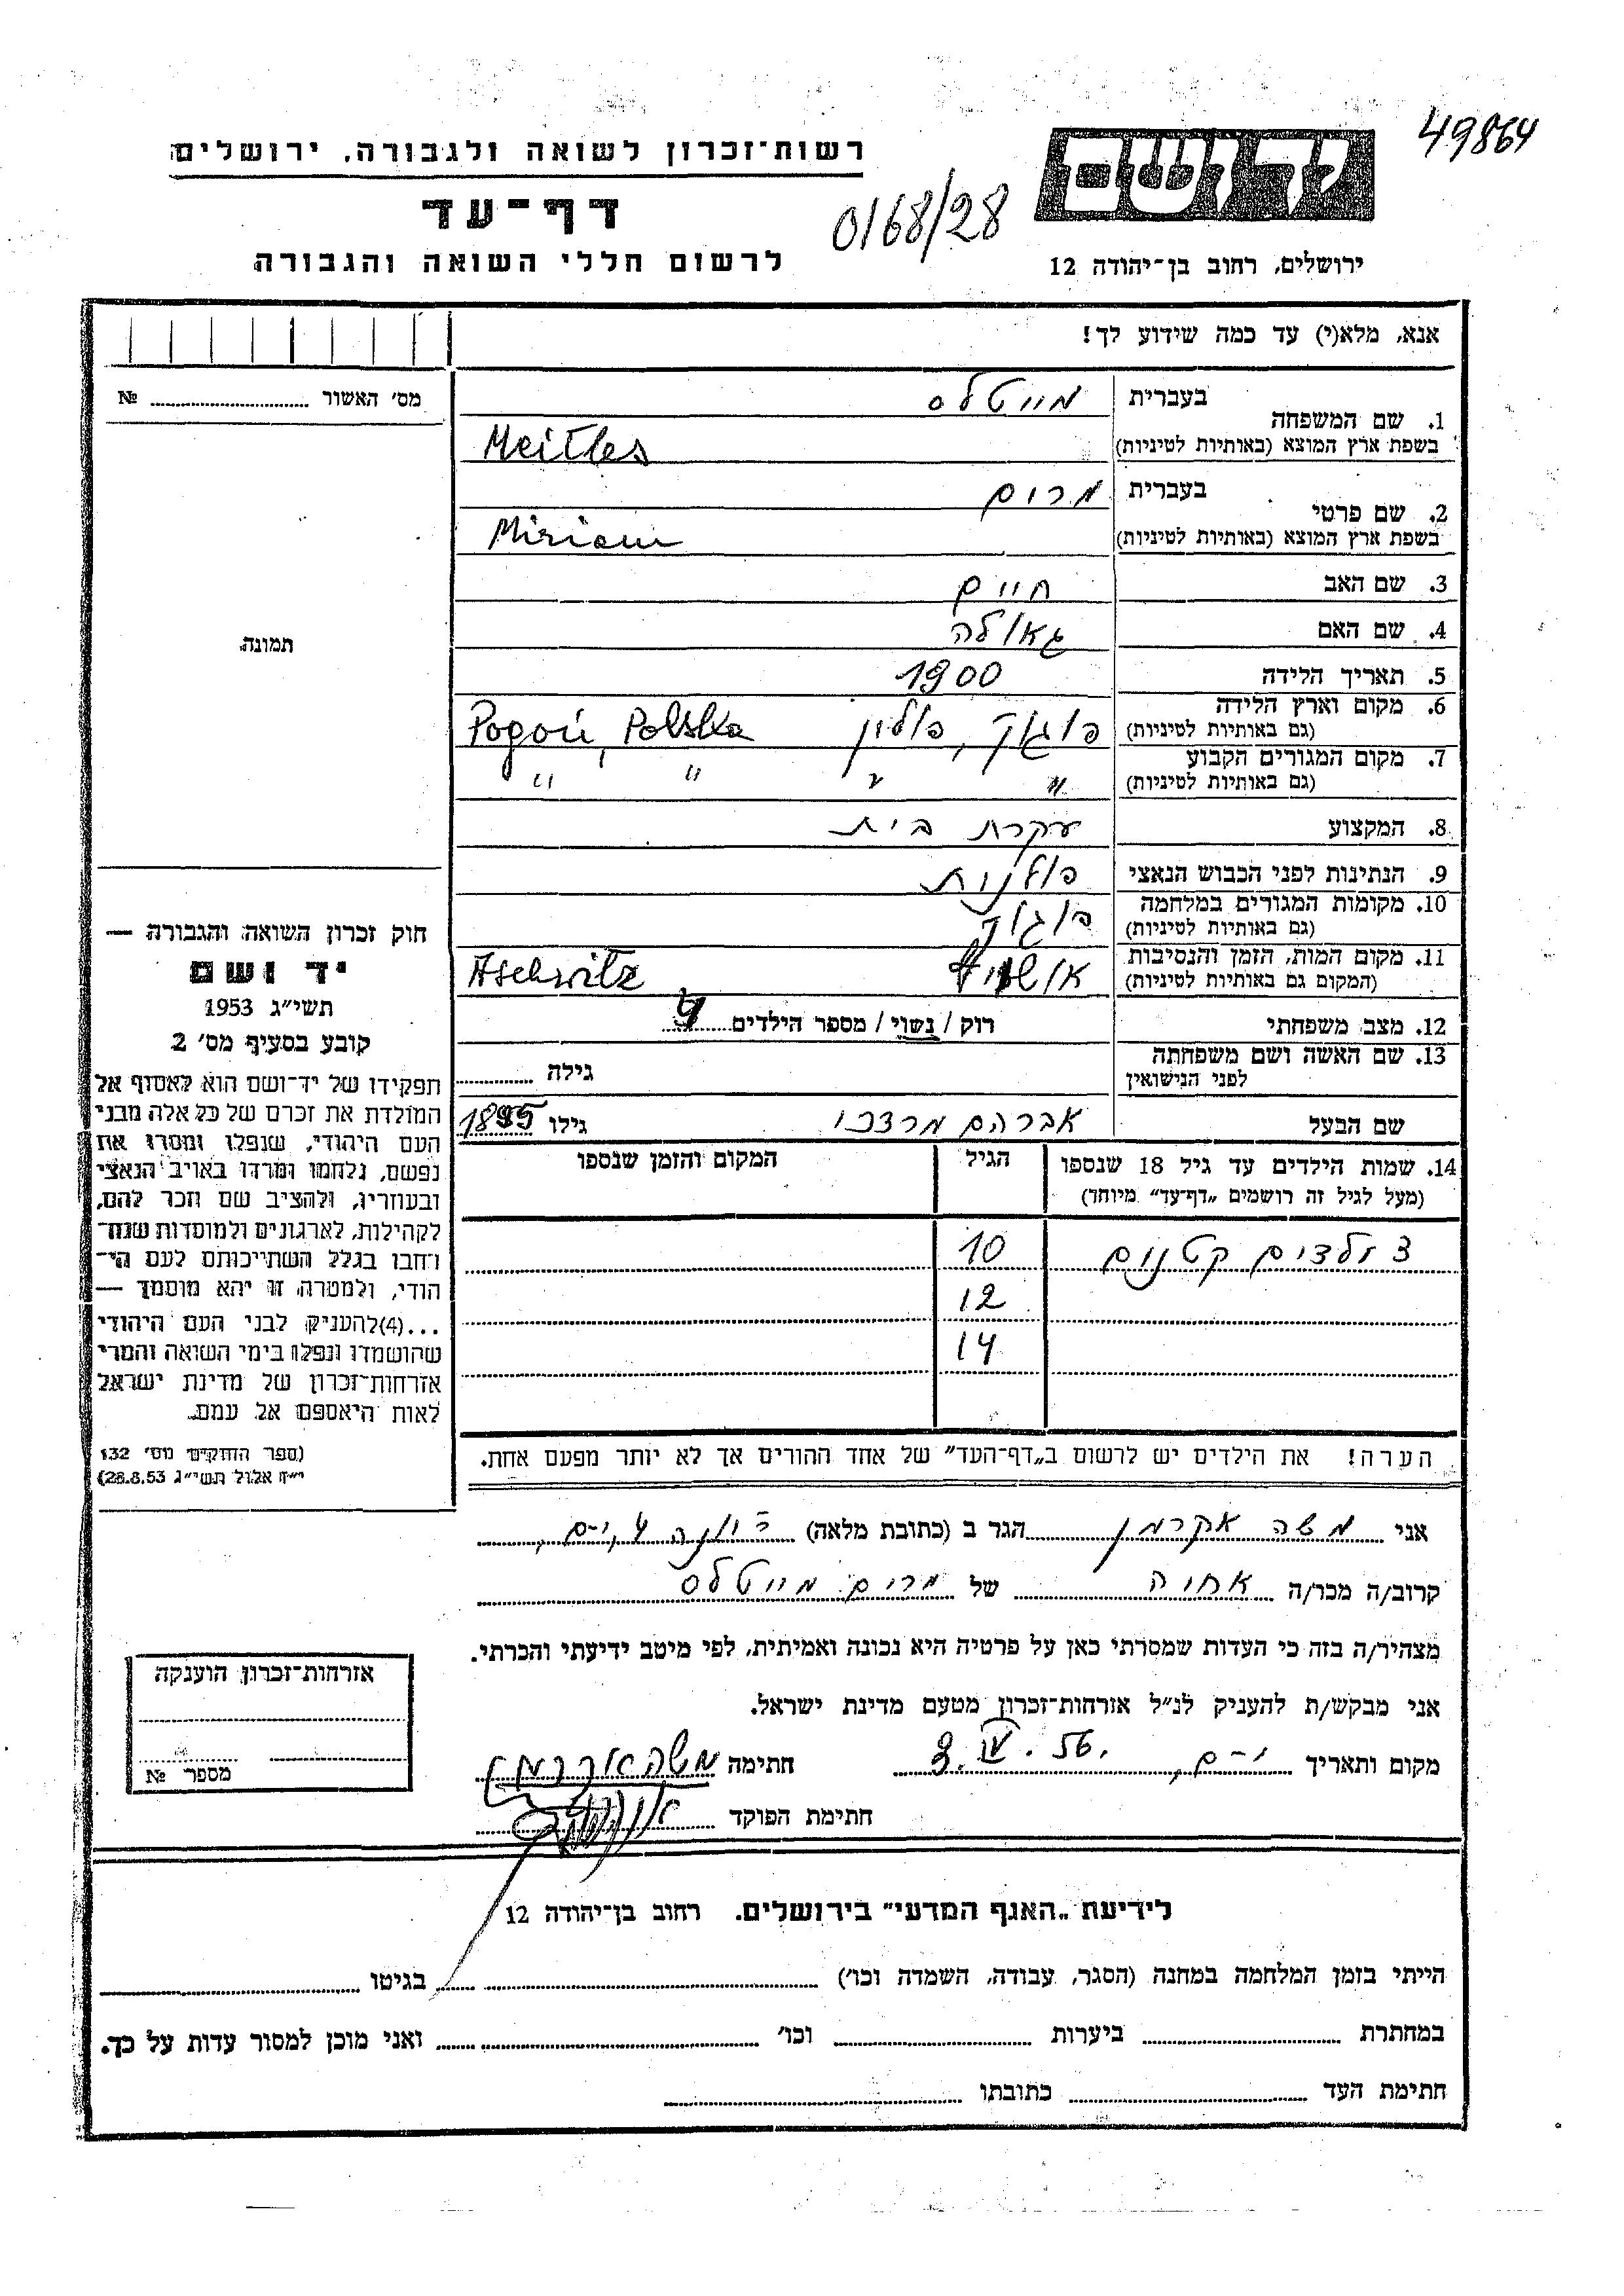 49864
יד ושם
רשות־זכרון לשואה ולגבורה, ירושלים
דף־עד
0168/28
לרשום חללי השואה והגבורה
ירושלים, רחוב בן־יהודה 12
אנא, מלא(י) עד כמה שידוע לך!
מס׳ האשור № 
1. שם המשפחה
בעברית מייטלס
בשפת ארץ המוצא (באותיות לטיניות) Meitles
2. שם פרטי
בעברית מרים
בשפת ארץ המוצא (באותיות לטיניות) Miriam
3. שם האב חיים
4. שם האם גאולה
5. תאריך הלידה 1900
6. מקום וארץ הלידה
(גם באותיות לטיניות) פוגון, פולין Pogoń, Polska
7. מקום המגורים הקבוע
(גם באותיות לטיניות) " " " "
8. המקצוע עקרת בית
9. הנתינות לפני הכבוש הנאצי פולנית
10. מקומות המגורים במלחמה
(גם באותיות לטיניות) פוגון
11. מקום המות, הזמן והנסיבות
(המקום גם באותיות לטיניות) Aschwitz
12. מצב משפחתי רוק / נשוי / מספר הילדים 4
13. שם האשה ושם משפחתה
לפני הנישואין גילה
שם הבעל אברהם מרדכי גילו 1895
14. שמות הילדים עד גיל 18 שנספו
(מעל לגיל זה רושמים „דף־עד” מיוחד)
הגיל
המקום והזמן שנספו
3 ילדים קטנים 10
12
14
הערה! את הילדים יש לרשום ב„דף־העד” של אחד ההורים אך לא יותר מפעם אחת.
תמונה
חוק זכרון השואה והגבורה —
יד ושם
תשי״ג 1953
קובע בסעיף מס׳ 2
תפקידו של יד־ושם הוא לאסוף אל
המולדת את זכרם של כל אלה מבני
העם היהודי, שנפלו ומסרו את
נפשם, נלחמו ומרדו באויב הנאצי
ובעוזריו, ולהציב שם וזכר להם,
לקהילות, לארגונים ולמוסדות שנח־
רחבו בגלל השתייכותם לעם הי־
הודי, ולמטרה זו יהא מוסמך —
...(4) להעניק לבני העם היהודי
שהושמדו ונפלו בימי השואה והמרי
אזרחות־זכרון של מדינת ישראל
לאות היאספם אל עמם.
(ספר החוקים מס׳ 132
י״ז אלול תשי״ג 28.8.53)
אני משה אקרמן הגר ב (כתובת מלאה)
קרוב/ה מכר/ה אחיה של מרים מייטלס
מצהיר/ה בזה כי העדות שמסרתי כאן על פרטיה היא נכונה ואמיתית, לפי מיטב ידיעתי והכרתי.
אני מבקש/ת להעניק לנ״ל אזרחות־זכרון מטעם מדינת ישראל.
מקום ותאריך י-ם, 3.IV.56. חתימה משה אקרמן
חתימת הפוקד
אזרחות־זכרון הוענקה
מספר №
לידיעת „האגף המדעי” בירושלים, רחוב בן־יהודה 12
הייתי בזמן המלחמה במחנה (הסגר, עבודה, השמדה וכו׳) בגיטו
במחתרת ביערות וכו׳ ואני מוכן למסור עדות על כך.
חתימת העד כתובתו